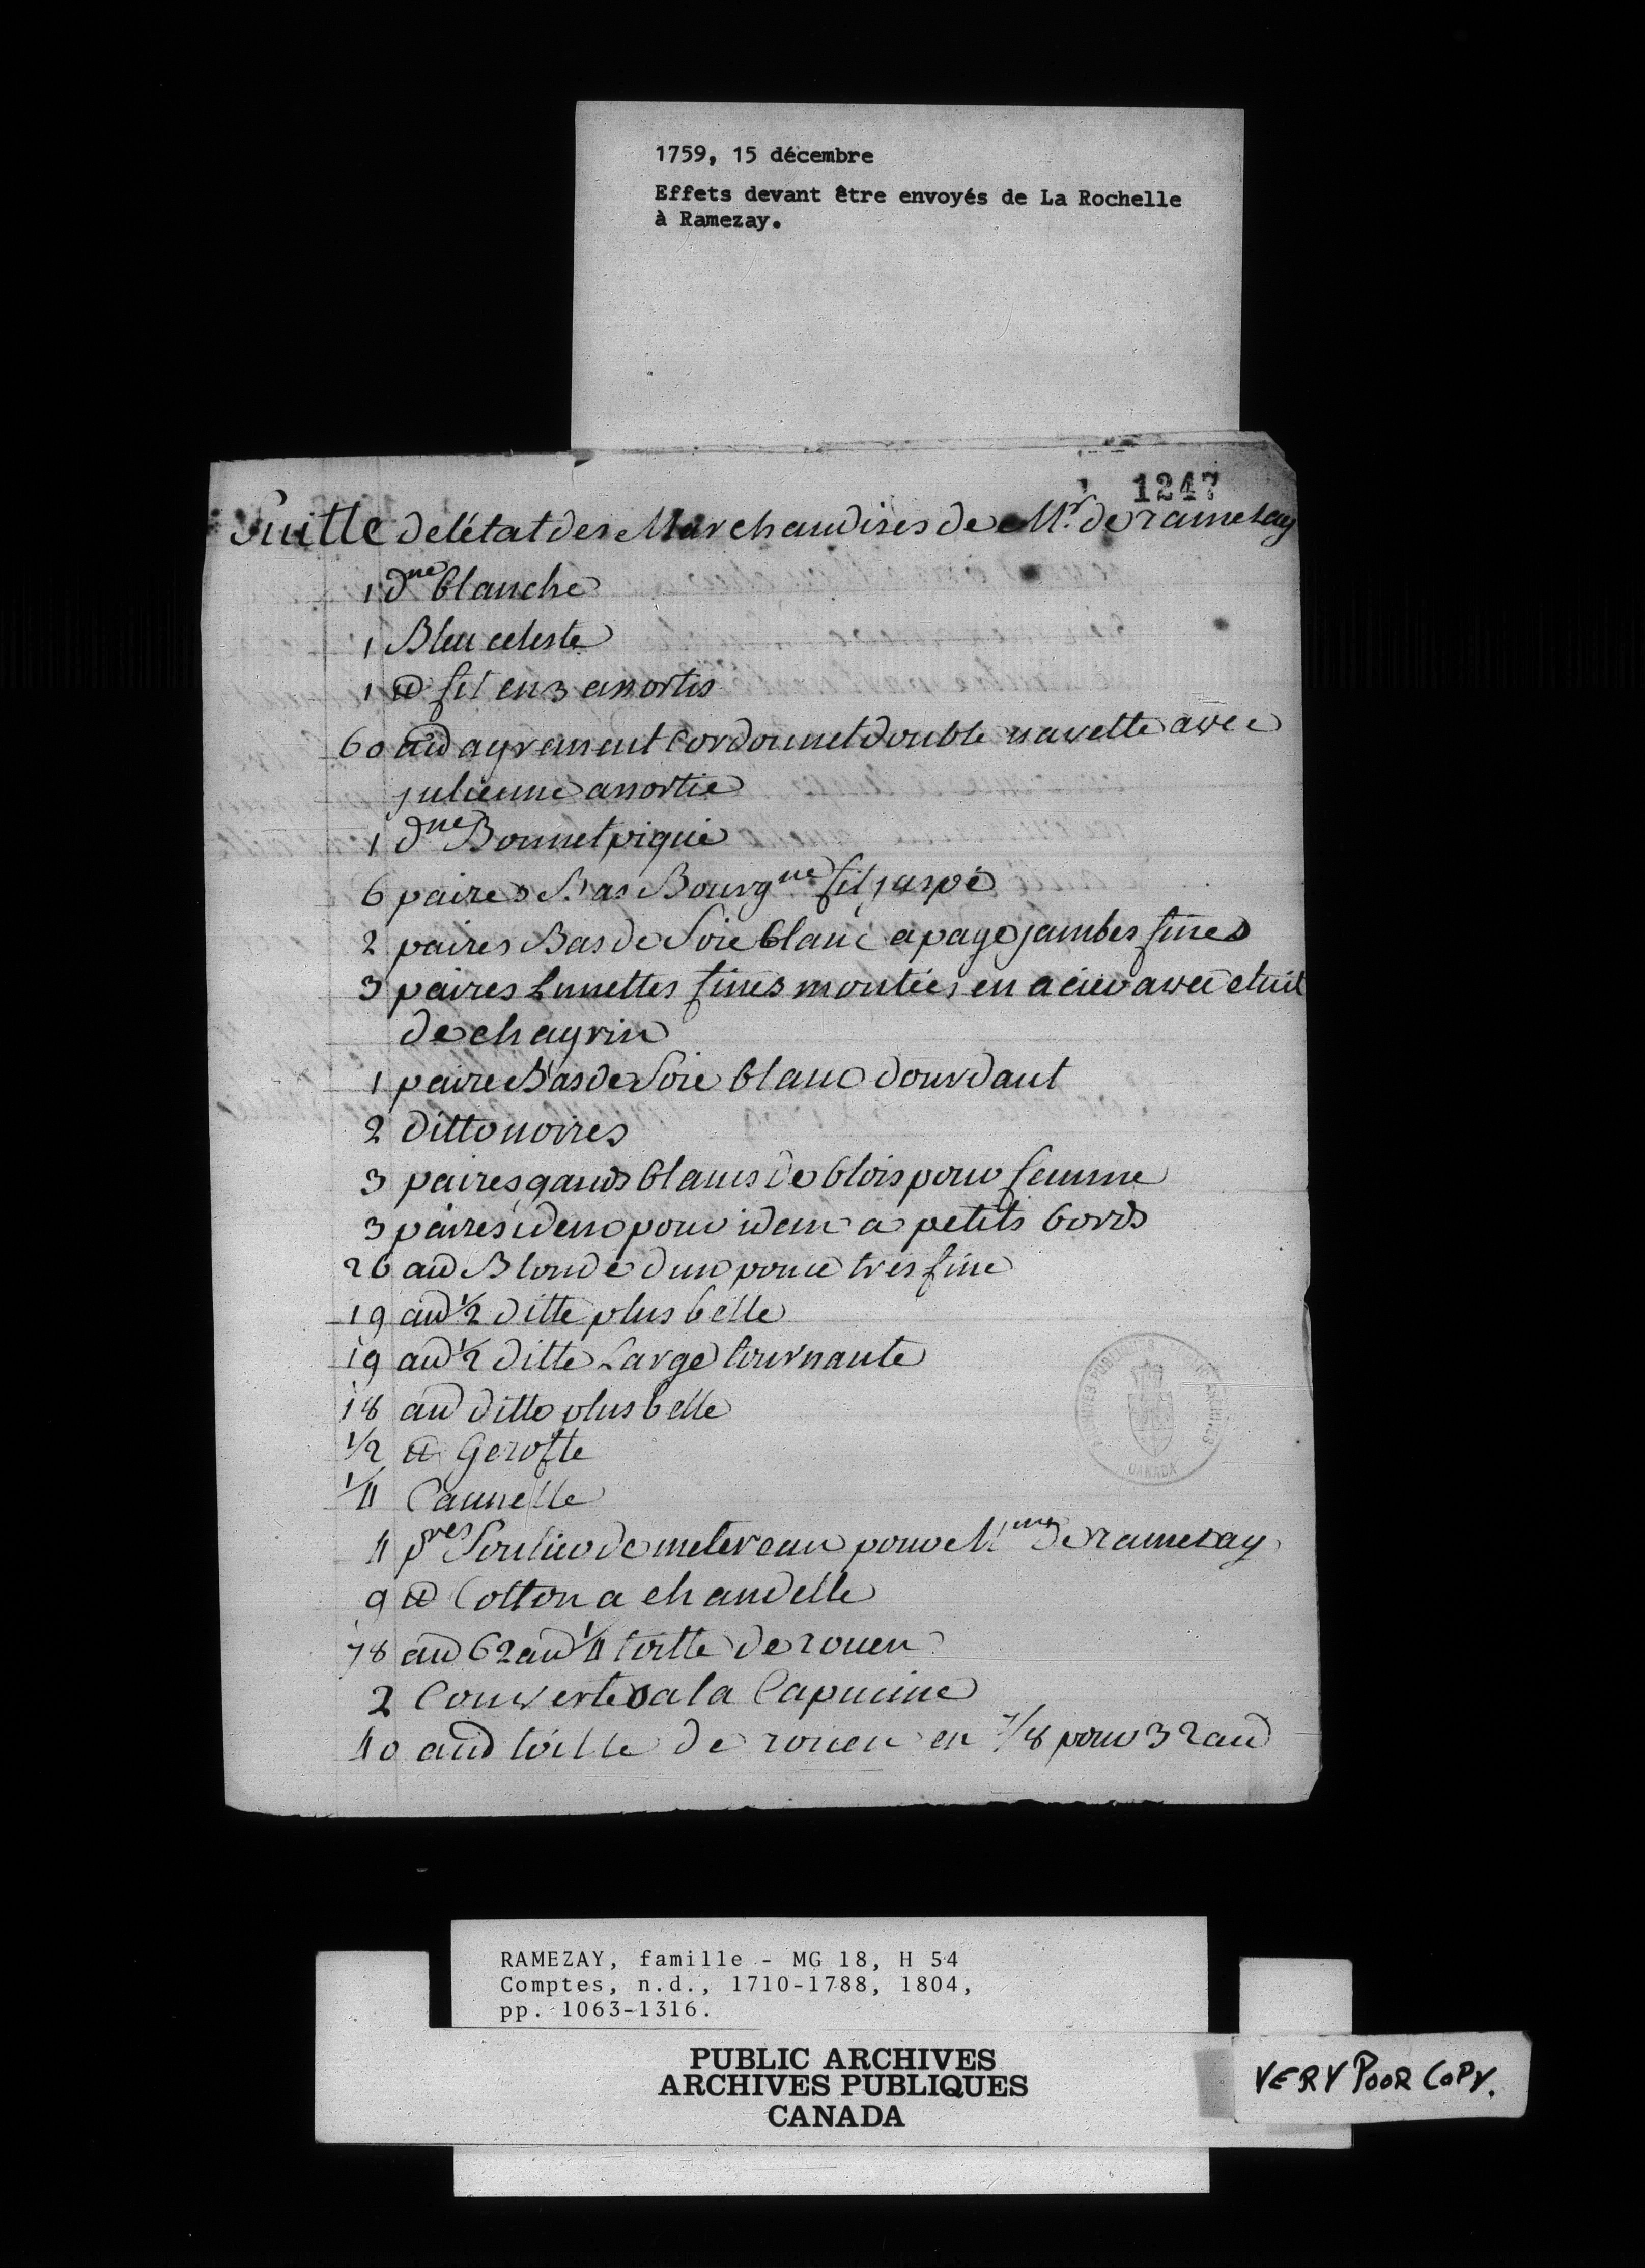 1759, 15 décembre
Effets devant être envoyés de La Rochelle
à Ramezay.
1247
Suitte de létat des Marchandises de Mr. de ramesay
1 dne blanche
1 Bleu celeste
1 ₶ fil en 3 assortis
60 au agrement Cordonnet double navette avec
julienne assortie
1 dne Bonnet piqué
6 paires Bas Bourgne fil jaspé
2 paires Bas de Soie blanc a page jambes fines
3 paires Lunettes fines montées en acier avec etuit
de chagrin
1 paire Bas de Soie blanc dourdant
2 ditto noires
3 paires gands blancs de blois pour femme
3 paires idem pour idem a petits bords
26 au Blonde dun pouce tres fine
19 au 1/2 ditte plus belle
19 au 1/2 ditte Large tournante
18 au ditto plus belle
1/2 ₶ Gerofle
1/4 Cannelle
4 pres Soulier de metereau pour Mme de ramesay
9 ₶ Cotton a chandelle
78 au 62 au 1/4 toille de rouen
2 Couvertes a la Capucine
40 au toille de rouen en 7/8 pour 32 au
ARCHIVES PUBLIQUES PUBLIC ARCHIVES
CANADA
RAMEZAY, famille - MG 18, H 54
Comptes, n.d., 1710-1788, 1804,
pp. 1063-1316.
PUBLIC ARCHIVES
ARCHIVES PUBLIQUES
CANADA
VERY POOR COPY.